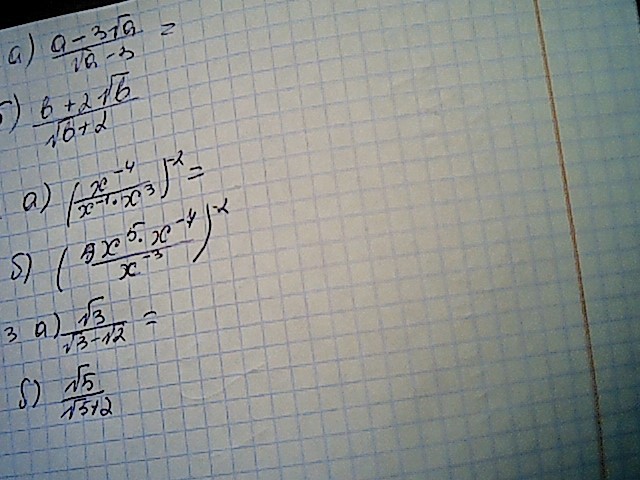 а) (a - 3√a)/(√a - 3) =
б) (b + 2√b)/(√b + 2)
а) (x⁻⁴/(x⁻¹ · x³))⁻² =
б) (x⁵ · x⁻⁴/x⁻³)⁻²
3 а) √3/(√3 - √2) =
б) √5/(√5+2)